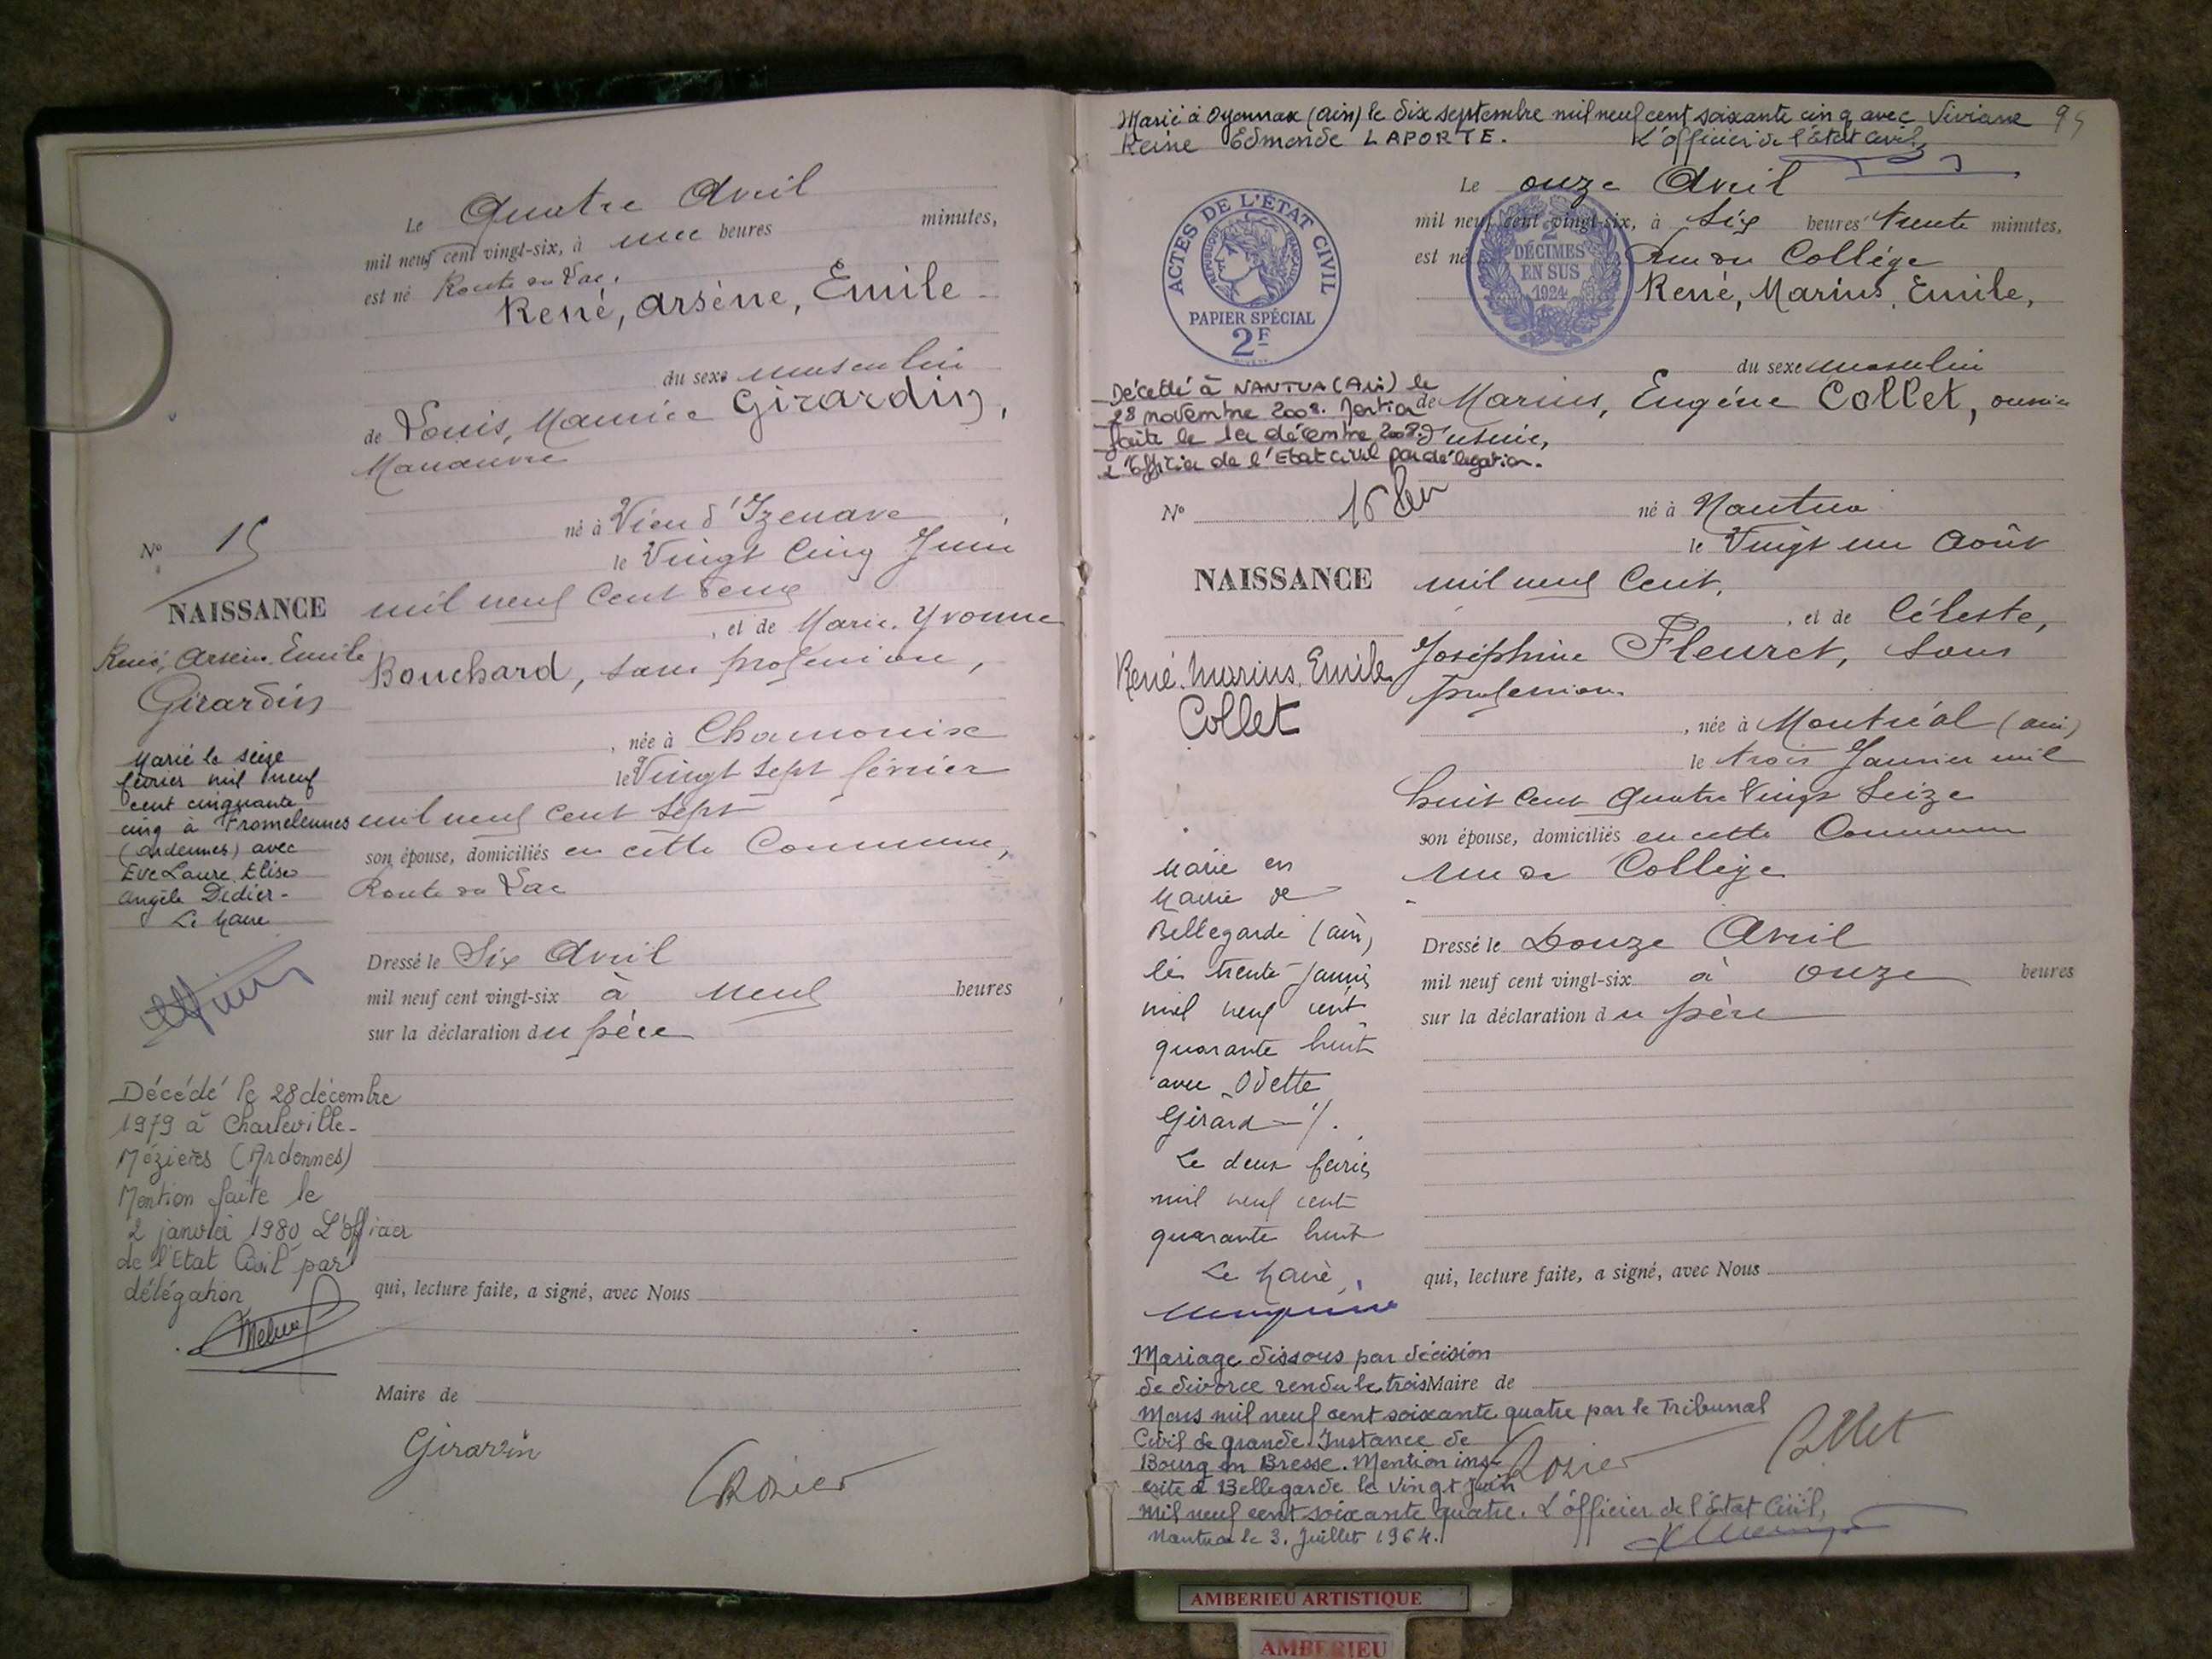 Le Quatre Avril
mil neuf cent vingt-six, à une heures minutes,
est né Route du Lac,
René, Arsène, Emile
du sexe masculin
de Louis, Maurice Girardin,
Manœuvre
né à Vieu d'Izenave
le Vingt Cinq Juin
mil neuf Cent deux
, et de Marie, Yvonne
Bouchard, sans profession,
, née à Chamonix
le Vingt Sept février
mil neuf cent Sept
son épouse, domiciliés en cette Commune,
Route du Lac
Dressé le Six Avril
mil neuf cent vingt-six à neuf heures
sur la déclaration du père
qui, lecture faite, a signé, avec Nous
Maire de
Girardin
Rosier
N° 15
NAISSANCE
René, Arsène, Emile
Girardin
Marié le seize
février mil neuf
cent cinquante
cinq à Fromelennes
(Ardennes) avec
Eve Laure Elise
Angèle Didier -
Le Maire
Décédé le 28 décembre
1979 à Charleville-
Mézières (Ardennes)
Mention faite le
2 janvier 1980 L'Officier
de l'Etat Civil par
délégation
Marié à Oyonnax (Ain) le dix septembre mil neuf cent soixante cinq avec Viviane
Reine Edmonde LAPORTE. L'officier de l'état civil,
95
ACTES DE L'ÉTAT CIVIL
RÉPUBLIQUE FRANÇAISE
PAPIER SPÉCIAL
2F
2
DÉCIMES
EN SUS
1924
Le onze Avril
mil neuf cent vingt-six, à Six heures trente minutes,
est né Rue du Collège
René, Marius, Emile,
du sexe masculin
de Marius, Eugène Collet, ouvrier
d'usine,
né à Nantua
le Vingt un Août
mil neuf Cent,
, et de Céleste,
Joséphine Fleuret, sans
profession
, née à Montréal (Ain)
le trois Janvier mil
huit Cent Quatre Vingt Seize
son épouse, domiciliés en cette Commune
rue du Collège
Dressé le Douze Avril
mil neuf cent vingt-six à onze heures
sur la déclaration du père
qui, lecture faite, a signé, avec Nous
Maire de
Rosier
Collet
Décédé à NANTUA (Ain) le
28 novembre 2008. Mention
faite le 1er décembre 2008.
L'Officier de l'Etat civil par délégation.
N° 16
NAISSANCE
René, Marius, Emile
Collet
Marié en
Mairie de
Bellegarde (Ain)
le trente janvier
mil neuf cent
quarante huit
avec Odette
Girard -/.
Le deux février
mil neuf cent
quarante huit
Le Maire,
Mariage dissous par décision
de divorce rendu le trois
Mars mil neuf cent soixante quatre par le Tribunal
Civil de grande Instance de
Bourg en Bresse. Mention ins-
crite à Bellegarde le vingt juin
mil neuf cent soixante quatre. L'officier de l'état Civil,
Nantua le 3. Juillet 1964.
AMBERIEU ARTISTIQUE
AMBERIEU